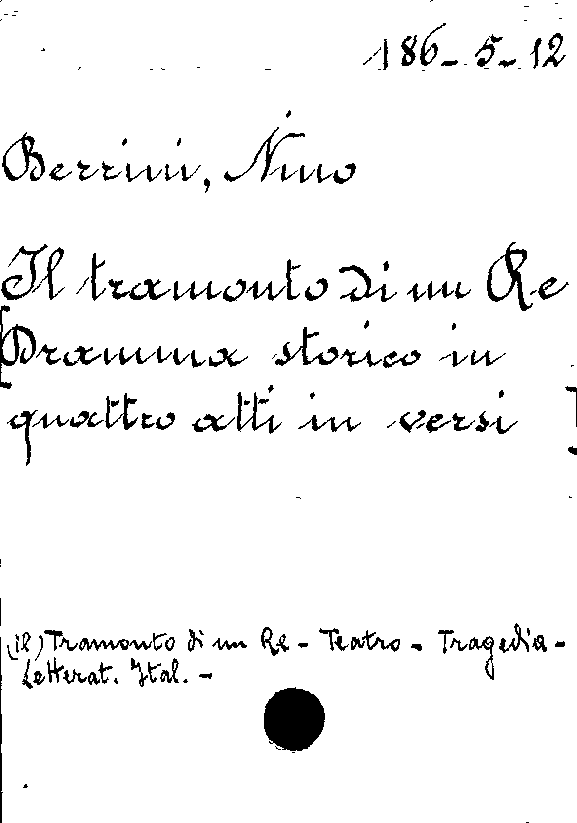 186-5-12
Berrini, Nino
Il tramonto di un Re
[Dramma storico in
quattro atti in versi ]
(il) Tramonto di un Re - Teatro - Tragedia -
Letterat. Ital. -